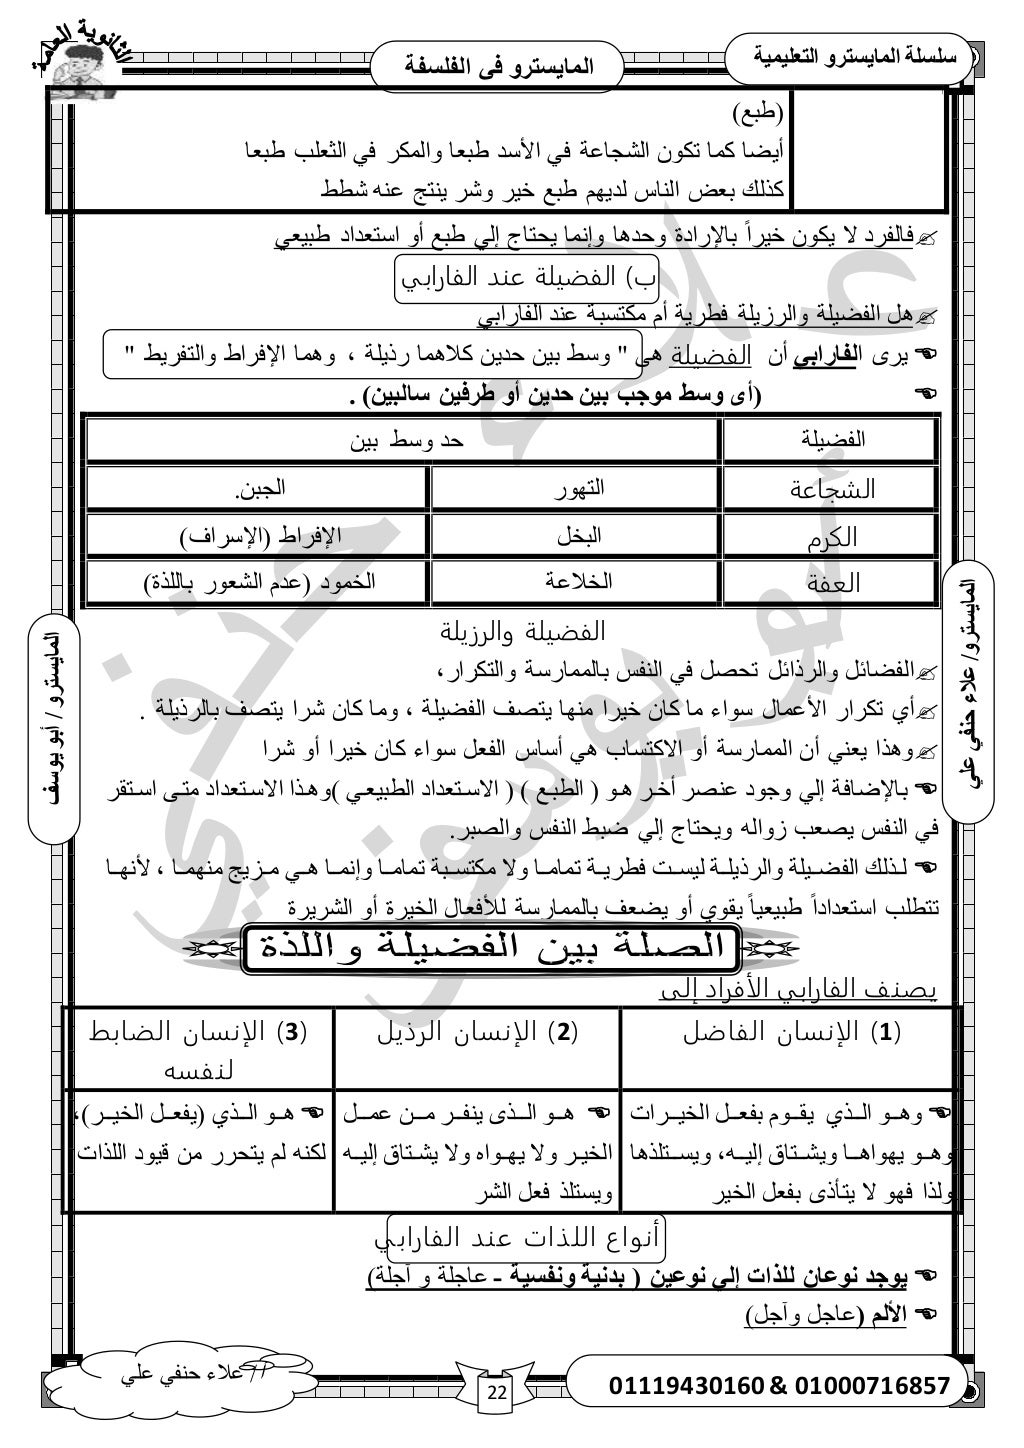 الثانوية العامة
سلسلة المايسترو التعليمية
المايسترو فى الفلسفة
(طبع)
أيضا كما تكون الشجاعة في الأسد طبعا والمكر في الثعلب طبعا
كذلك بعض الناس لديهم طبع خير وشر ينتج عنه شطط
فالفرد لا يكون خيراً بالإرادة وحدها وإنما يحتاج إلي طبع أو استعداد طبيعي
ب) الفضيلة عند الفارابي
هل الفضيلة والرزيلة فطرية أم مكتسبة عند الفارابي
يرى الفارابي أن الفضيلة هي " وسط بين حدين كلاهما رذيلة ، وهما الإفراط والتفريط "
(أى وسط موجب بين حدين أو طرفين سالبين) .
الفضيلة حد وسط بين
الشجاعة التهور الجبن.
الكرم البخل الإفراط (الإسراف)
العفة الخلاعة الخمود (عدم الشعور باللذة)
الفضيلة والرزيلة
الفضائل والرذائل تحصل في النفس بالممارسة والتكرار،
أي تكرار الأعمال سواء ما كان خيرا منها يتصف الفضيلة ، وما كان شرا يتصف بالرذيلة .
وهذا يعني أن الممارسة أو الاكتساب هي أساس الفعل سواء كان خيرا أو شرا
بالإضافة إلي وجود عنصر أخر هو ( الطبع ) ( الاستعداد الطبيعي )وهذا الاستعداد متى استقر
في النفس يصعب زواله ويحتاج إلي ضبط النفس والصبر.
لذلك الفضيلة والرذيلة ليست فطرية تماما ولا مكتسبة تماما وإنما هي مزيج منهما ، لأنها
تتطلب استعداداً طبيعياً يقوي أو يضعف بالممارسة للأفعال الخيرة أو الشريرة
الصلة بين الفضيلة واللذة
يصنف الفارابي الأفراد إلى
(1) الإنسان الفاضل (2) الإنسان الرذيل (3) الإنسان الضابط
لنفسه
وهو الذي يقوم بفعل الخيرات
وهو يهواها ويشتاق إليه، ويستلذها
ولذا فهو لا يتأذى بفعل الخير
هو الذى ينفر من عمل
الخير ولا يهواه ولا يشتاق إليه
ويستلذ فعل الشر
هو الذي (يفعل الخير)،
لكنه لم يتحرر من قيود اللذات
أنواع اللذات عند الفارابي
يوجد نوعان للذات إلي نوعين ( بدنية ونفسية - عاجلة و آجلة)
الألم (عاجل وآجل)
المايسترو/ علاء حنفي علي
المايسترو / أبو يوسف
علاء حنفي
أبو يوسف
01119430160 & 01000716857
22
أ/ علاء حنفي علي